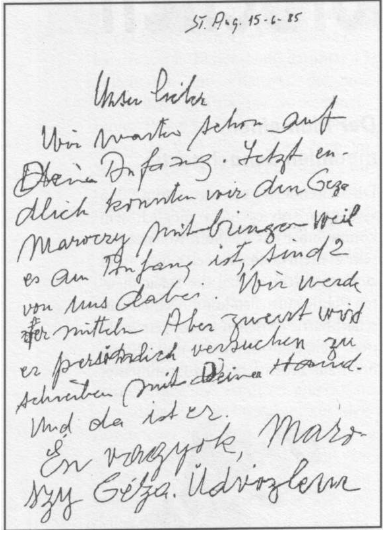 St. Aug. 15-6-85
Unser lieber
Wir warten schon auf
Deinen Anfang. Jetzt en-
dlich konnten wir den Geza
Maroczy mitbringen weil
es am Anfang ist, sind 2
von uns dabei. Wir werde
vermitteln Aber zuerst wird
er persönlich versuchen zu
schreiben mit deiner Haand.
Und da ist er.
Én vagyok, Maro-
szy Géza. Üdvözlem